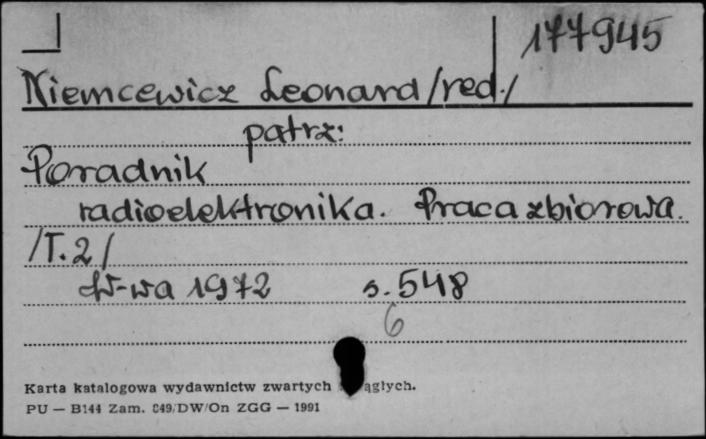 177945
Niemcewicz Leonard /red./
patrz:
Poradnik
radioelektronika. Praca zbiorowa.
/T.2/
W-wa 1972 s. 548
6
Karta katalogowa wydawnictw zwartych ągłych.
PU — B144 Zam. 849/DW/On ZGG — 1991